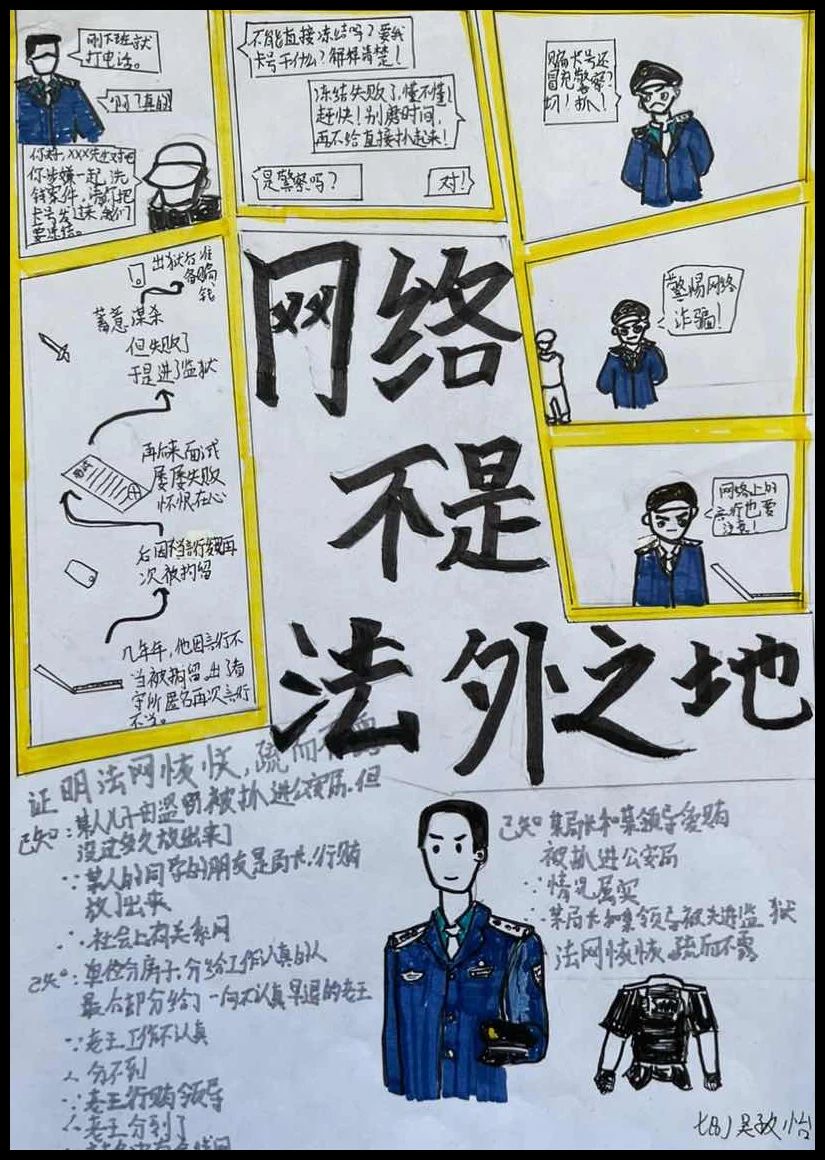 刚下班就
打电话。
啊？真的
你好，XXX先生对吧
你涉嫌一起洗
钱案件，请把
卡号发过来，我们
要冻结。
不能直接冻结吗？要我
卡号干什么？解释清楚！
冻结失败了，懂不懂！
赶快！别磨时间，
再不给直接扒起来！
是警察吗？
对！
骗卡号还
冒充警察？
切！扒！
警惕网络
诈骗！
网络上的
言行也要
注意！
出狱后准
备骗
钱
蓄意谋杀
但失败了
于是进了监狱
再后来面试
屡屡失败
怀恨在心
后因不当言行发现再
次被拘留
几年年，他因言行不
当被拘留，出了看
守所匿名再次言行
不当。
网络
不是
法外之地
证明法网恢恢，疏而不漏
已知：某人儿子因盗窃被扒进公安局，但
没过多久放出来了
∵某人的同学的朋友是局长，行贿
放了出来
∴社会上有关系网
已知：单位分房子，分给工作认真的人
最后却分给了一向不认真早退的老王
∵老王工作不认真
∴分不到
∵老王行贿领导
∴老王分到了
已知 某局长和某领导受贿
被扒进公安局
∵情况属实
∴某局长和某领导被关进监狱
法网恢恢，疏而不露